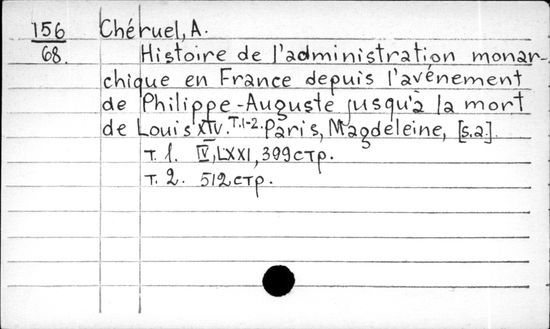 156 Chéruel, A.
68 Histoire de l'administration monar-
chique en France depuis l'avénement
de Philippe-Auguste jusqu'à la mort
de Louis XIV. T.1-2. Paris, Magdeleine, [s.a.].
T. 1. IV, LXXI, 399 стр.
T. 2. 512 стр.